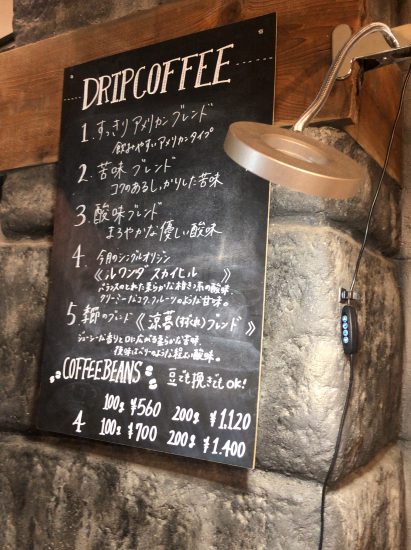 DRIPCOFFEE
1. すっきりアメリカンブレンド
飲みやすいアメリカンタイプ
2. 苦味ブレンド
コクのあるしっかりした苦味
3. 酸味ブレンド
まろやかな優しい酸味
4. 今月のシングルオリジン
《ルワンダ スカイヒル》
バランスのとれた柔らかな柑きつ系の酸味。
クリーミーなコク。フルーツのような甘味。
5. 季節のブレンド《涼暮(すずくれ)ブレンド》
ジューシーな香りと口に広がる柔らかな苦味。
後味はベリーのような程よい酸味。
COFFEEBEANS 豆でも挽きでもOK!
100g ¥560 200g ¥1,120
4 100g ¥700 200g ¥1,400